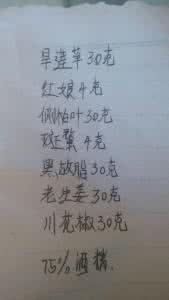 旱莲草30克
红娘4克
侧柏叶30克
斑蝥4克
黑故脂30克
老生姜30克
川花椒30克
75%酒精.